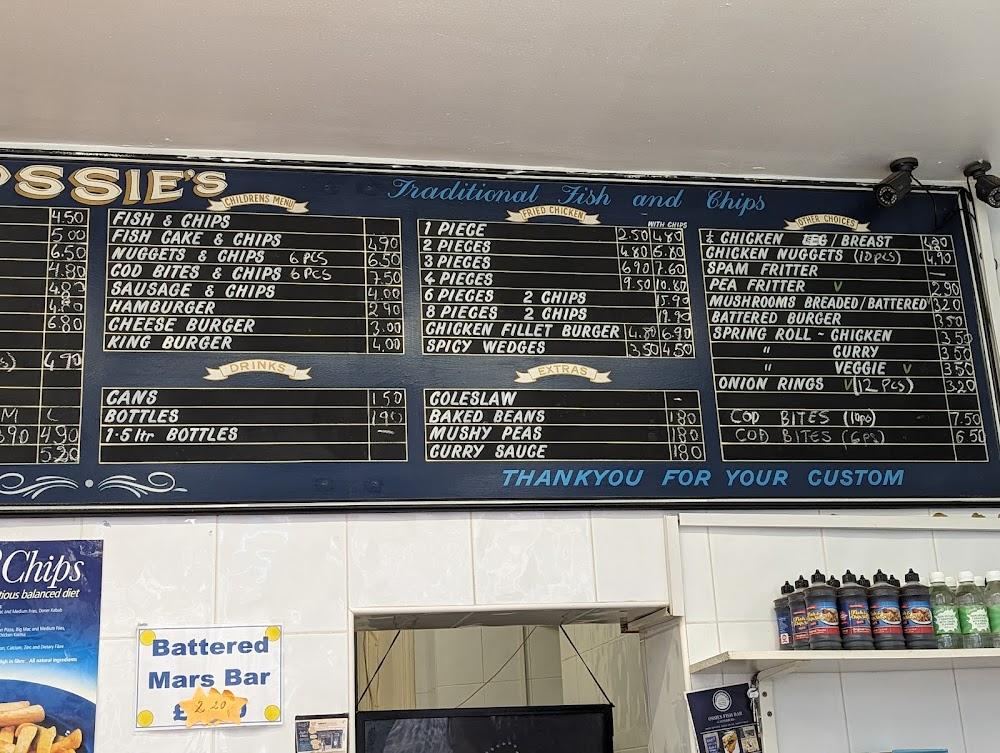 OSSIE'S
Traditional Fish and Chips
4.50
5.00
6.50
4.80
4.80
6.80
4.90
M L
3.90 4.90
5.20
CHILDRENS MENU
FISH & CHIPS
FISH CAKE & CHIPS 4.90
NUGGETS & CHIPS 6 PCS 6.50
COD BITES & CHIPS 6 PCS 7.50
SAUSAGE & CHIPS 4.00
HAMBURGER 2.90
CHEESE BURGER 3.00
KING BURGER 4.00
DRINKS
CANS 1 50
BOTTLES 1 90
1·5 ltr BOTTLES —
FRIED CHICKEN
WITH CHIPS
1 PIECE 2.50 4.80
2 PIECES 4.80 5.80
3 PIECES 6.90 7.60
4 PIECES 9.50 10.80
6 PIECES 2 CHIPS 15.90
8 PIECES 2 CHIPS 19.90
CHICKEN FILLET BURGER 4.80 6.90
SPICY WEDGES 3.50 4.50
EXTRAS
COLESLAW -
BAKED BEANS 1.80
MUSHY PEAS 1.80
CURRY SAUCE 1.80
OTHER CHOICES
CHICKEN LEG / BREAST
CHICKEN NUGGETS (10 pcs) 4.90
SPAM FRITTER —
PEA FRITTER V 2.90
MUSHROOMS BREADED/BATTERED 3.20
BATTERED BURGER 3.50
SPRING ROLL ~ CHICKEN 3.50
" CURRY 3.50
" VEGGIE V 3.50
ONION RINGS V (12 PCS) 3.20
COD BITES (10 pc) 7.50
COD BITES (6 pc) 6 50
THANKYOU FOR YOUR CUSTOM
Chips
tious balanced diet
Battered
Mars Bar
£ 2 20